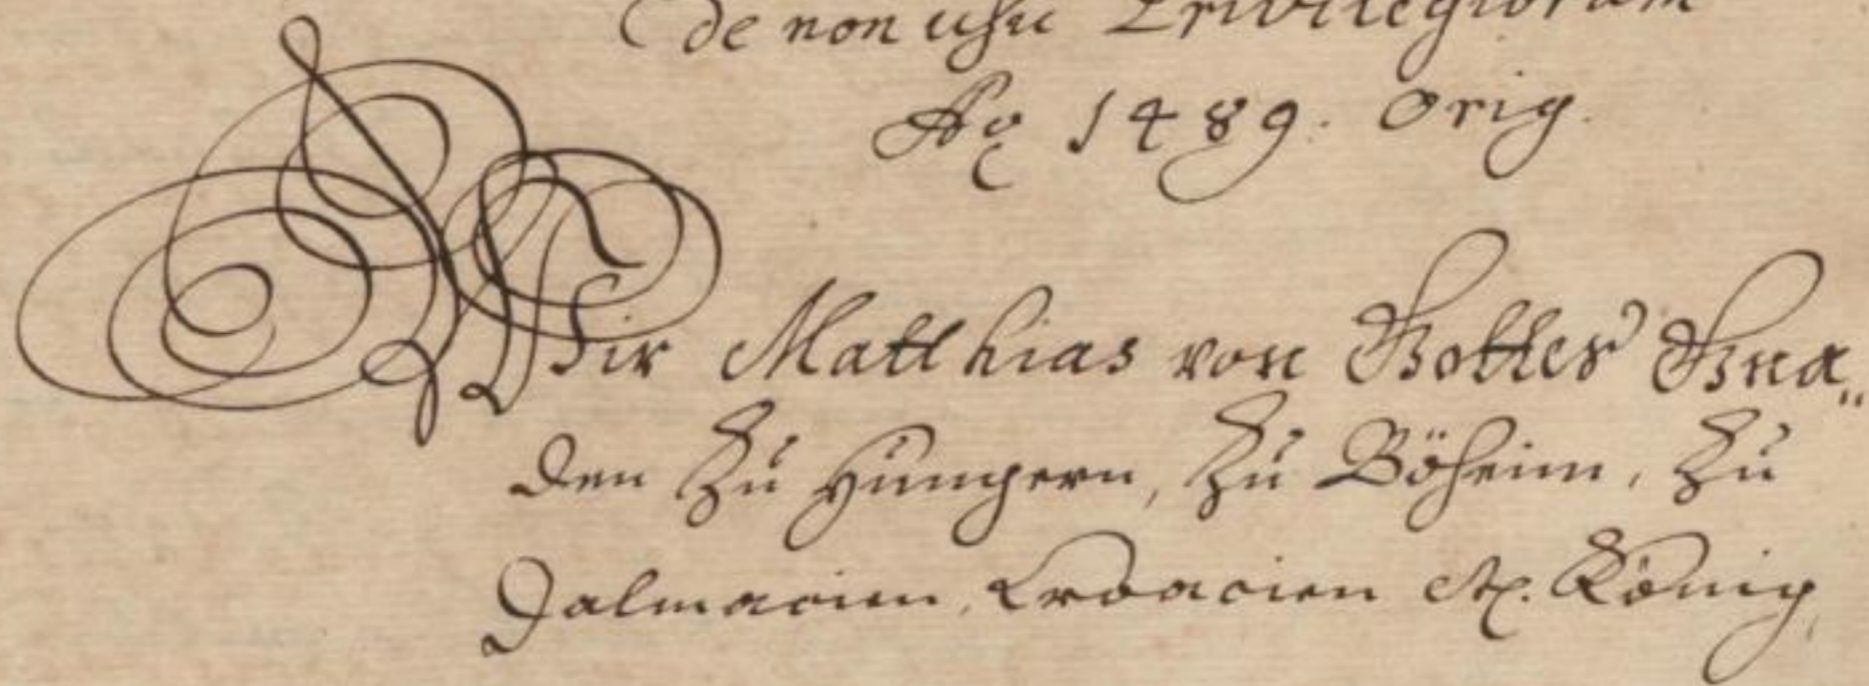 de non usu Privilegiorum
Ao 1489. Orig.
Wir Matthias von Gottes Gna„
den Zu Hungern, Zu Böheim, Zu
Dalmacien, Croacien etc. König,